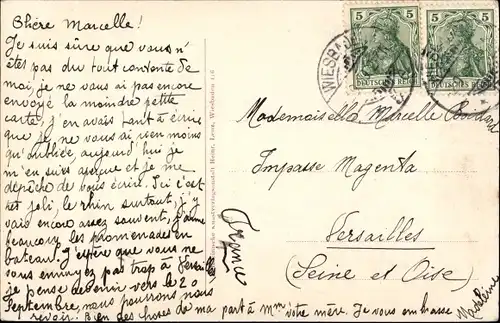 Chère Marcelle!
Je suis sûre que vous n'
êtes pas du tout contente de
moi, je ne vous ai pas encore
envoyé la moindre petite
carte, j'en avais tant à écrire
que je ne vous ai non moins
qu'oubliée, aujourd'hui je
m'en suis aperçue et je me
dépêche de vous écrire. Ici c'est
très joli, le rhin surtout, j'y
vais encore assez souvent, j'aime
beaucoup les promenades en
bateau. J'espère que vous ne
vous ennuyez pas trop à Versailles
je pense revenir vers le 20
Septembre, nous pourrons nous
revoir. Bien des choses de ma part à Mme votre mère. Je vous embrasse
Madeleine
Wiesbaden
5 5
DEUTSCHES REICH
5 5
DEUTSCHES REICH
WIESBADEN
Mademoiselle Marcelle
Impasse Magenta
Versailles
(Seine et Oise)
France